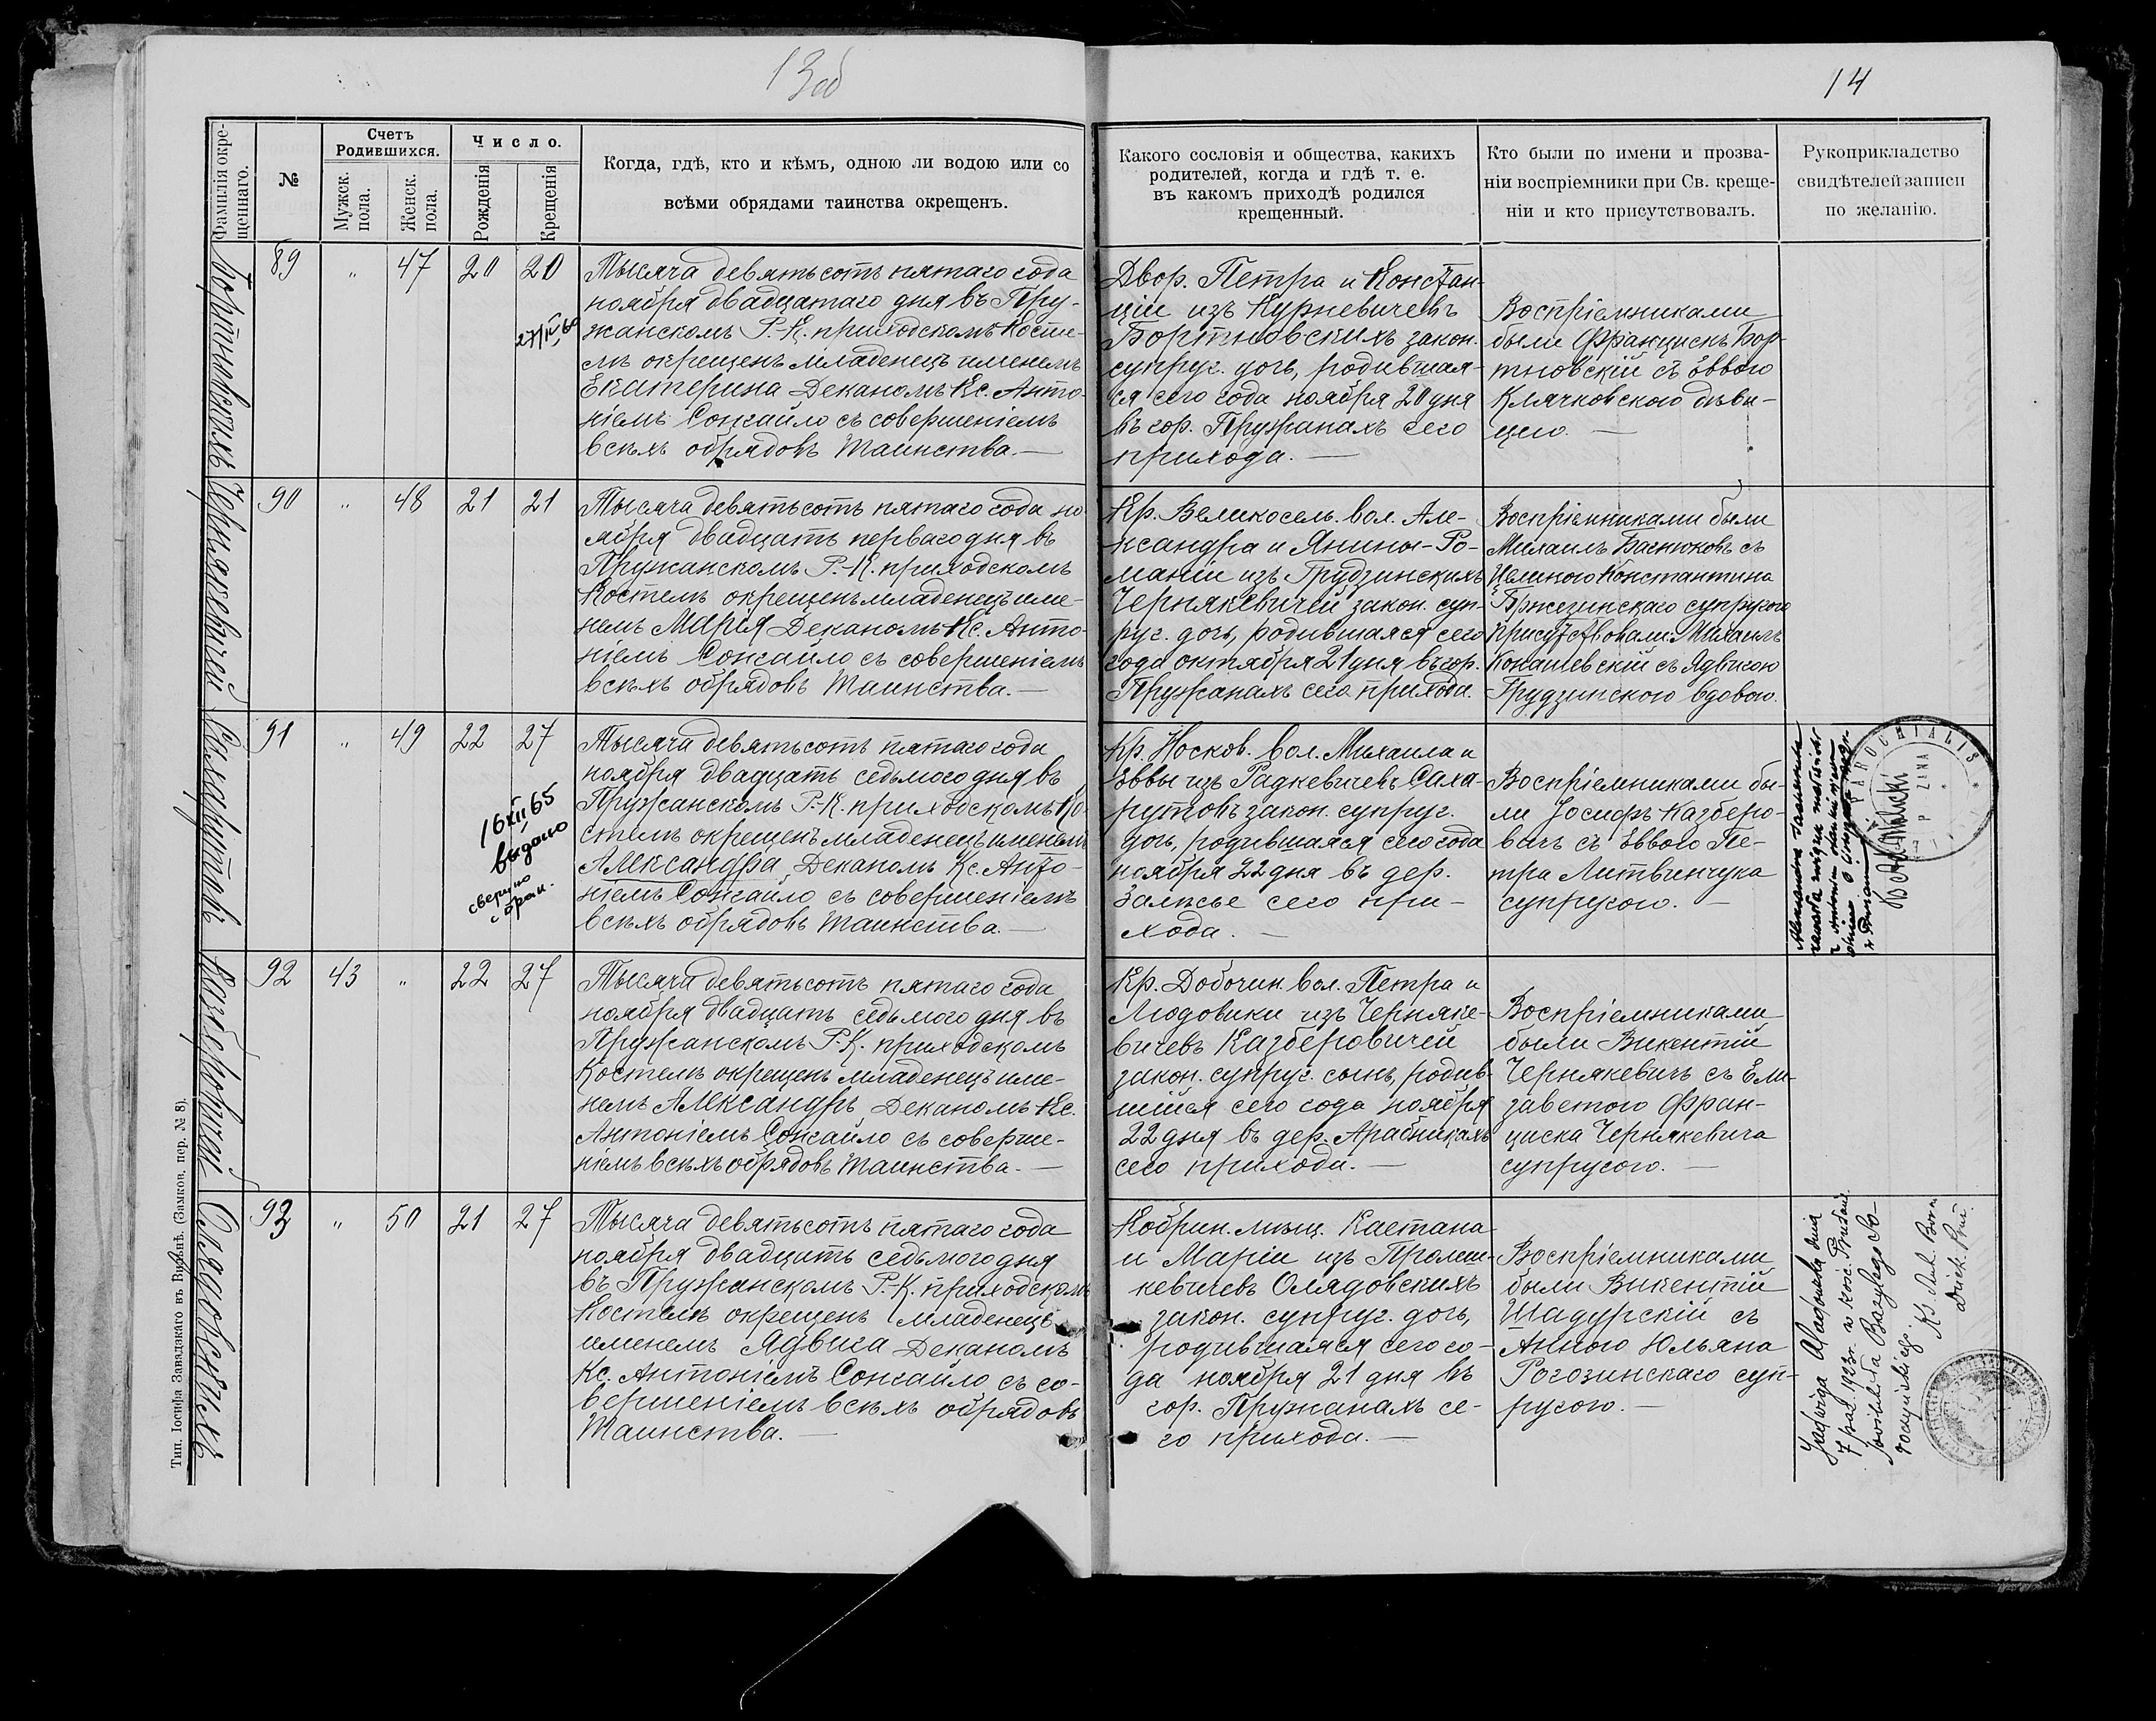 13об
14
Фамилія окре-
щеннаго.
№
Счетъ
Родившихся.
Мужск.
пола.
Женск.
пола.
Число.
Рожденія
Крещенія
Когда, гдѣ, кто и кѣмъ, одною ли водою или со
всѣми обрядами таинства окрещенъ.
Какого сословія и общества, какихъ
родителей, когда и гдѣ т. е.
въ какомъ приходѣ родился
крещенный.
Кто были по имени и прозва-
ніи воспріемники при Св. креще-
ніи и кто присутствовалъ.
Рукоприкладство
свидѣтелей записи
по желанію.
Бортновскихъ
89 " 47 20 20
Тысяча девятьсотъ пятаго года
ноября двадцатаго дня въ Пру-
жанскомъ Р.-К. приходскомъ Косте-
лѣ окрещенъ младенецъ именемъ
Екатерина Деканомъ Кс. Анто-
ніемъ Сонгайло съ совершеніемъ
всѣхъ обрядовъ Таинства.—
Двор. Петра и Констан-
ціи изъ Курневичевъ
Бортновскихъ закон.
супруг. дочь, родившая-
ся сего года ноября 20 дня
въ гор. Пружанахъ сего
прихода.—
Воспріемниками
были Францискъ Бор-
тновскій съ Еввою
Клячковскою дѣви-
цею.—
Чернякевичей
90 " 48 21 21
Тысяча девятьсотъ пятаго года но-
ября двадцать перваго дня въ
Пружанскомъ Р.-К. приходскомъ
Костелѣ окрещенъ младенецъ име-
немъ Марія Деканомъ Кс. Анто-
ніемъ Сонгайло съ совершеніемъ
всѣхъ обрядовъ Таинства.—
Кр. Великосель. вол. Але-
ксандра и Янины-Ро-
маніи изъ Грудзинскихъ
Чернякевичей закон. суп-
руг. дочь, родившаяся сего
года октября 21 дня въ гор.
Пружанахъ сего прихода.
Воспріемниками были
Михаилъ Багнюковъ съ
Целиною Константина
Бржезинскаго супругою
Присутствовали Михаилъ
Конашевскій съ Ядвигою
Грудзинскою вдовою.
Сахарутовъ
91 " 49 22 27
16 XII 65
выдано
Тысяча девятьсотъ пятаго года
ноября двадцать седьмого дня въ
Пружанскомъ Р.-К. приходскомъ Ко-
стелѣ окрещенъ младенецъ именемъ
Александра, Деканомъ Кс. Анто-
ніемъ Сонгайло съ совершеніемъ
всѣхъ обрядовъ Таинства.—
Кр. Носков. вол. Михаила и
Еввы изъ Радкевичевъ Саха-
рутовъ закон. супруг.
дочь, родившаяся сего года
ноября 22 дня въ дер.
Залѣсье сего при-
хода.—
Воспріемниками бы-
ли Іосифъ Казберо-
вичъ съ Еввою Пе-
тра Литвинчука
супругою.—
PAROCHIALIS
Казберовичей
92 43 " 22 27
Тысяча девятьсотъ пятаго года
ноября двадцать седьмого дня въ
Пружанскомъ Р.-К. приходскомъ
Костелѣ окрещенъ младенецъ име-
немъ Александръ Деканомъ Кс.
Антоніемъ Сонгайло съ соверше-
ніемъ всѣхъ обрядовъ Таинства.—
Кр. Добочин. вол. Петра и
Людовики изъ Черняке-
вичевъ Казберовичей
закон. супруг. сынъ, родив-
шійся сего года ноября
22 дня въ дер. Арабникахъ
сего прихода.—
Воспріемниками
были Викентій
Чернякевичъ съ Ели-
заветою Фран-
циска Чернякевича
супругою.—
Олядовскихъ
93 " 50 21 27
Тысяча девятьсотъ пятаго года
ноября двадцать седьмого дня
въ Пружанскомъ Р.-К. приходскомъ
Костелѣ окрещенъ младенецъ
именемъ Ядвига Деканомъ
Кс. Антоніемъ Сонгайло съ со-
вершеніемъ всѣхъ обрядовъ
Таинства.—
Кобрин. мѣщ. Каетана
и Маріи изъ Промин-
кевичевъ Олядовскихъ
закон. супруг. дочь,
родившаяся сего го-
да ноября 21 дня въ
гор. Пружанахъ се-
го прихода.—
Воспріемниками
были Викентій
Шадурскій съ
Анною Юльяна
Рогозинскаго суп-
ругою.—
Jadwiga Oladowska dnia
7 paź. 1923 r. w kość. Pružań.
poślubiła Bazylego Ro-
Тип. Іосифа Завадзкаго въ Вильнѣ. (Замков. пер. № 8).